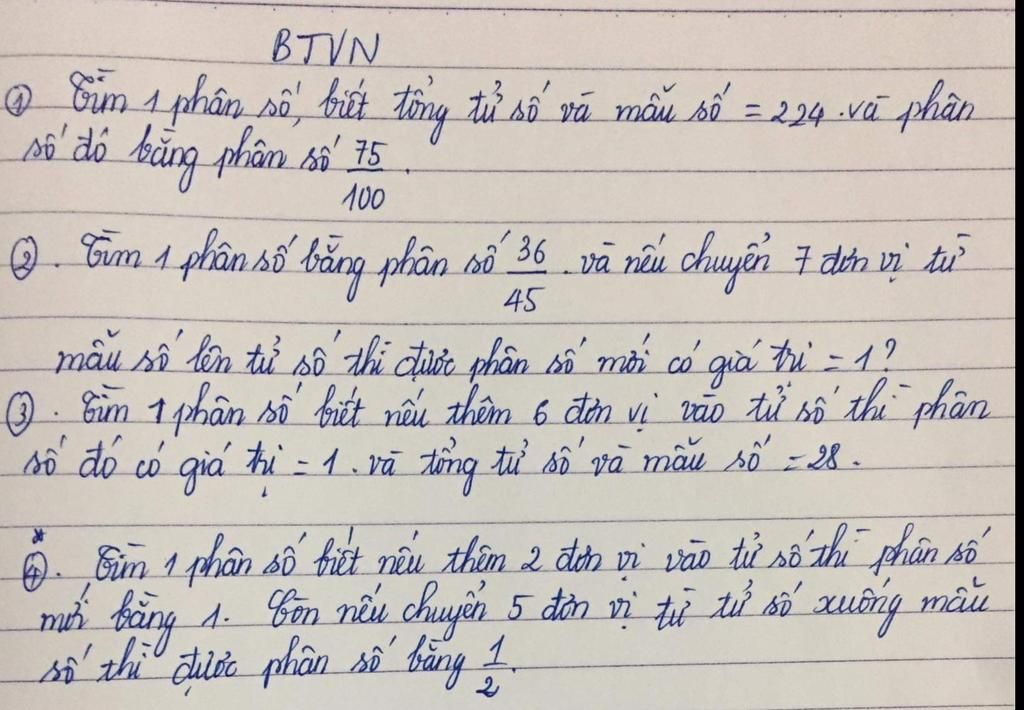 BTVN
① Tìm 1 phân số, biết tổng tử số và mẫu số = 224. và phân
số đó bằng phân số 75/100.
②. Tìm 1 phân số bằng phân số 36/45. và nếu chuyển 7 đơn vị từ
mẫu số lên tử số thì được phân số mới có giá tri = 1?
③. Tìm 1 phân số biết nếu thêm 6 đơn vị vào tử số thì phân
số đó có giá trị = 1. và tổng tử số và mẫu số = 28.
*
④. Tìm 1 phân số biết nếu thêm 2 đơn vị vào tử số thì phân số
mới bằng 1. Còn nếu chuyển 5 đơn vị từ tử số xuống mẫu
số thì được phân số bằng 1/2.